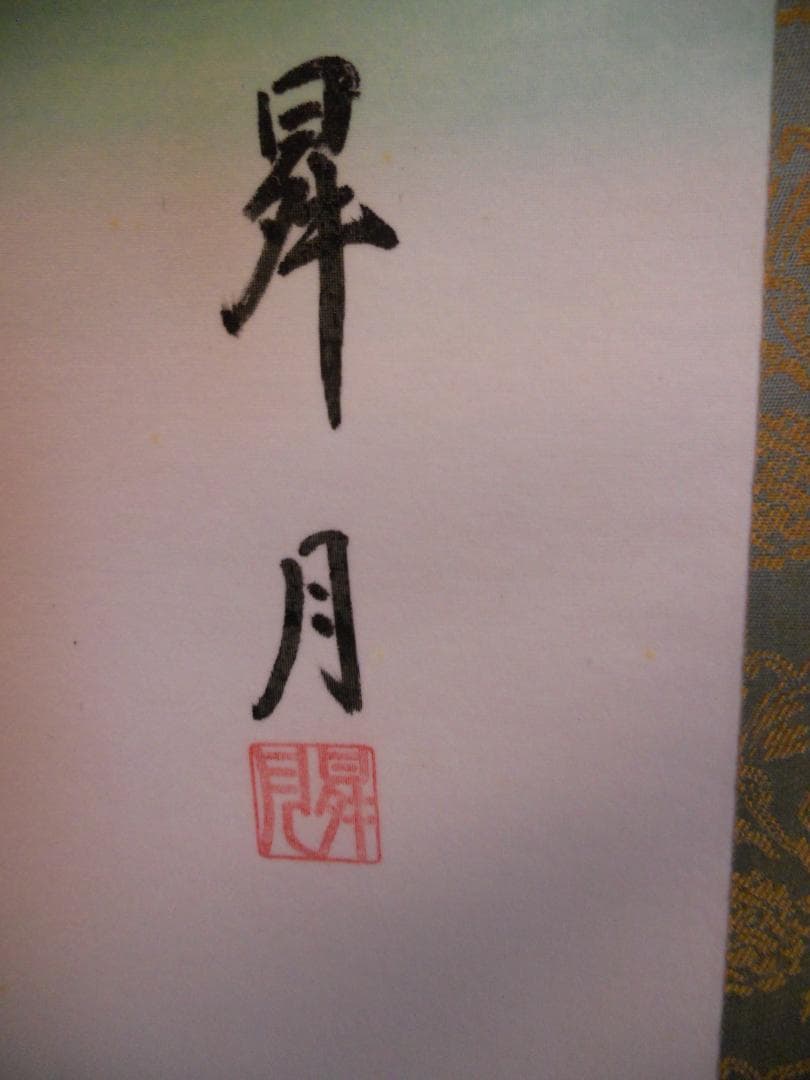 昇月
昇月